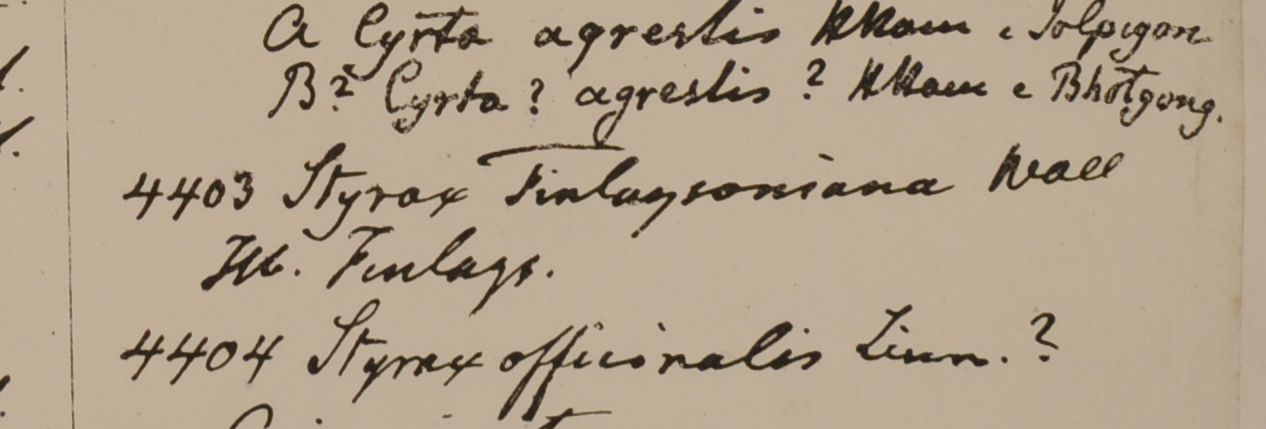 A Cyrta agrestis HHam e Jolpigon
B? Cyrta? agrestis? HHam e Bhotgong.
4403 Styrax Finlaysoniana Wall
Hb. Finlays.
4404 Styrax officinalis Linn.?